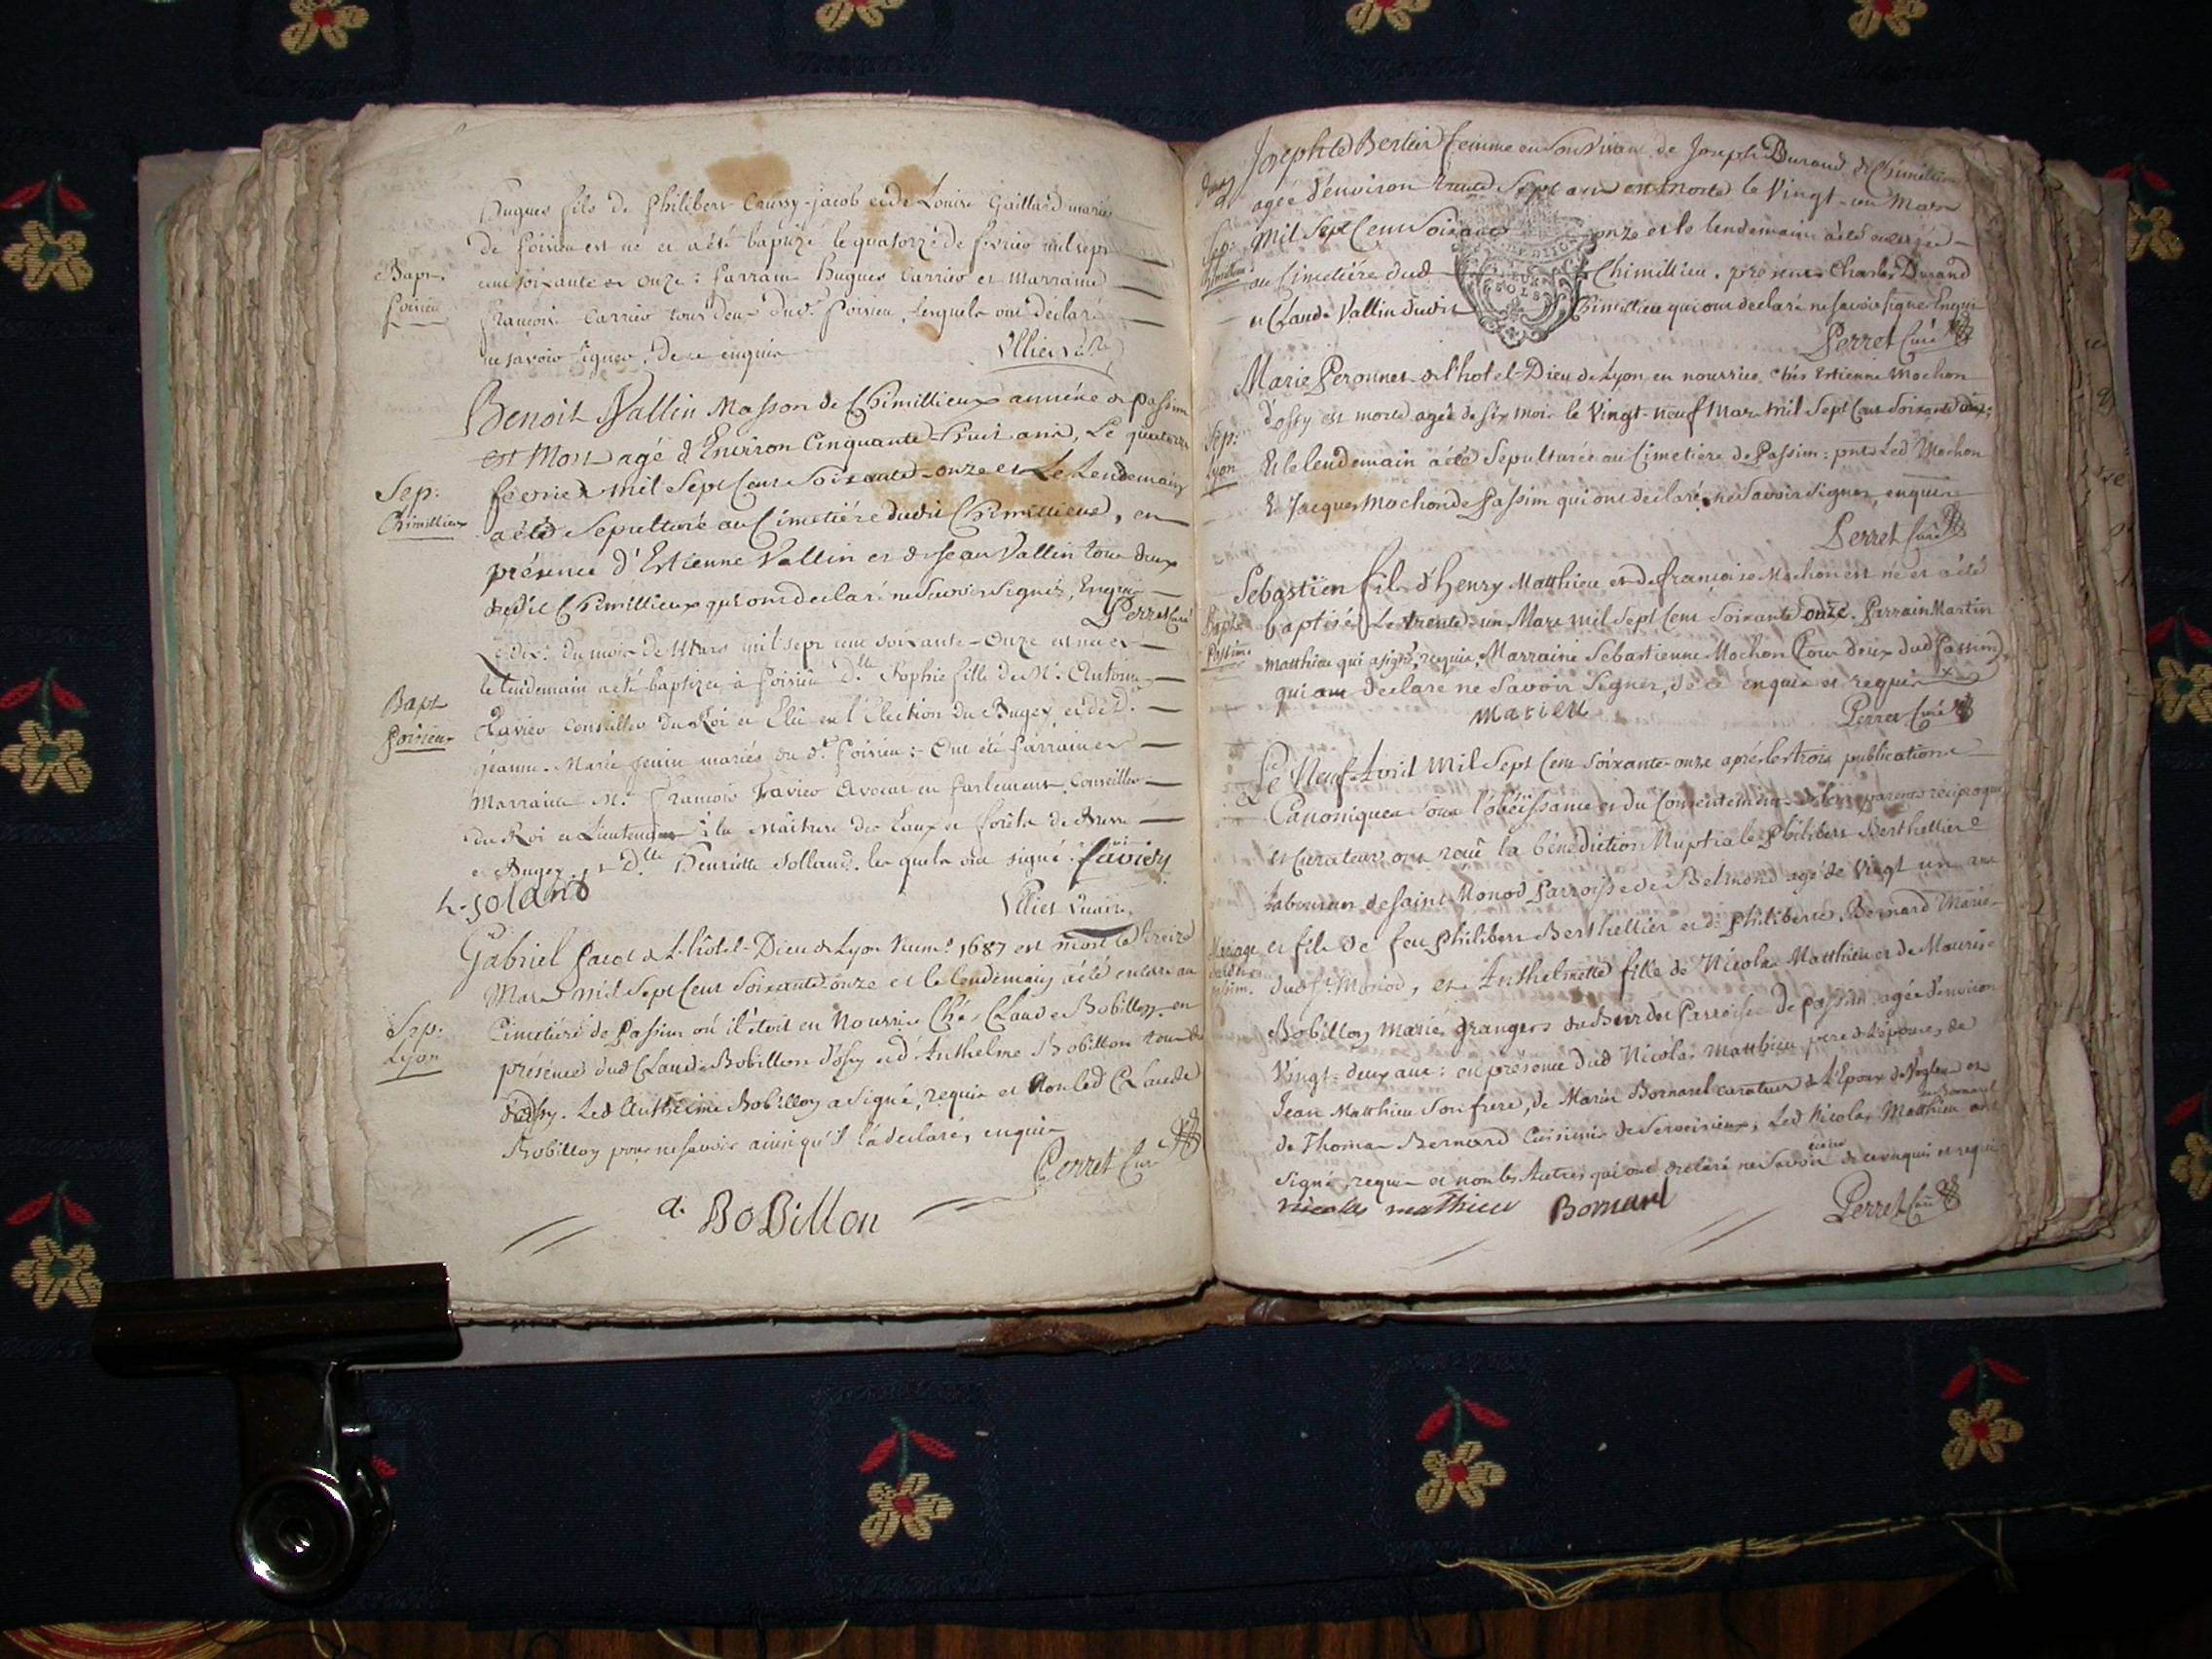 Hugues fils de Philibert Caussy-jacob et de Louise Gaillard mariés
de Poisieu est né et a été baptizé le quatorze de fevrier mil sept
Bapt.
Poisieu
cent soixante et onze : Parrain Hugues Carrier et Marraine
françoise Carrier tous deux dud. Poisieu, lesquels ont déclaré
ne savoir signer, de ce enquis
Benoit Vallin Masson de Chimillieux annéxe de passim
est Mort agé d'Environ Cinquante-huit ans, Le quatorze
Sep:
Chimillieux
fevrier mil Sept Cent Soixante-onze et Le Lendemain
a été Sepulturé au Cimetiére dudit Chimillieux, en
présence d'Estienne Vallin et de Jean Vallin tous deux
dudit Chimillieux qui ont declaré ne Savoir Signer, Enquis
Perret Curé
Le dix du mois de Mars mil sept cent soixante-onze est née et
le lendemain a été baptizée à Poisieu Dlle Sophie fille de Mr. Antoine
Bapt
Poisieu
Favier Conseiller du Roi et Elû en l'Election du Bugey et de D.
jeanne-Marie jenin mariés du dt Poisieu :- Ont été Parrain et
Marraine Mr. François Favier Avocat en Parlement, Conseiller
du Roi et Lieutenant à la Maîtrise des Eaux et forêts de Bresse
et Bugey, et Dlle Henriette Solland. lesquels ont signé. favier
h. soland
Ulliet Vicaire
Gabriel Pacot de L'hôtel-Dieu de Lyon Num.º 1687 est mort le treize
Mars mil Sept Cent Soixante onze et le lendemain a été enterré au
Sep:
Lyon
Cimetiére de Passim où il étoit en Nourrice Chés Claude Bobillon, en
présence dud Claude Bobillon d'ossy et d'Anthelme Bobillon tous deux
d'ossy. Led Anthelme Bobillon a Signé, requis et Non led Claude
Bobillon pour ne savoir ainsi qu'il l'a declaré, enquis
Perret Curé
a. BoBillon
Josephte Bertin femme en Son Vivant de Joseph Durand de Chimillieu
agée d'environ trente Sept ans est morte le Vingt-un Mars
Sep:
Chimillieu
Mil Sept Cent Soixante onze et le lendemain a été enterrée
au Cimetiére dud Chimillieu. présents Charles Durand
et Claude Vallin dudit Chimillieu qui ont declaré ne savoir signer Enquis
Perret Curé
Marie Peronnet de l'hotel-Dieu de Lyon en nourrice chés Estienne Mochon
d'ossy est morte agée de six mois le Vingt-neuf Mars mil Sept Cent Soixante onze;
Sep:
Lyon
Et le lendemain a été Sepulturée au Cimetière de Passim : pnts Led Mochon
Et Jacques Mochon de Passim qui ont declaré ne Savoir Signer, enquis
Perret Curé
Sebastïen fils d'henry Matthieu et de françoise Mochon est né et a été
Bapt
Passim
baptisé Le trente-un Mars mil Sept Cent Soixante onze. Parrain Martin
matthieu qui a signé, requis, Marraine Sebastienne Mochon tous deux dud Passim
qui a declaré ne Savoir Signer, de ce enquis et requis
Perret Curé
Le Neuf Avril Mil Sept Cent Soixante-onze aprés les trois publications
Canoniques Sous l'obéissance et du Consentement de leurs parents réciproques
et Curateurs ont reçû la bénédiction Nuptiale Philibert Berthellier
Laboureur de saint Monod Parroisse de Belmond agé de Vingt un ans
Mariage
et fils de feu Philibert Berthellier et de Philiberte Bernard Mariés
dud St. Monod, et Anthelmette fille de Nicolas Matthieu et de Maurise
Bobillon mariés grangers Parroisse de passim agée d'environ
Vingt-deux ans : en présence dud Nicolas Matthieu pere de l'épouse, de
Jean Matthieu Son frere, de Marin Bornarel curateur de l'Epoux de Voglen et
de Thomas Bernard Cuisinier de Serverieux, Led Nicolas Matthieu ont
Signé, requis et non les Autres qui ont declaré ne Savoir écrire de ce enquis et requis
nicolas mathieu
Perret Curé